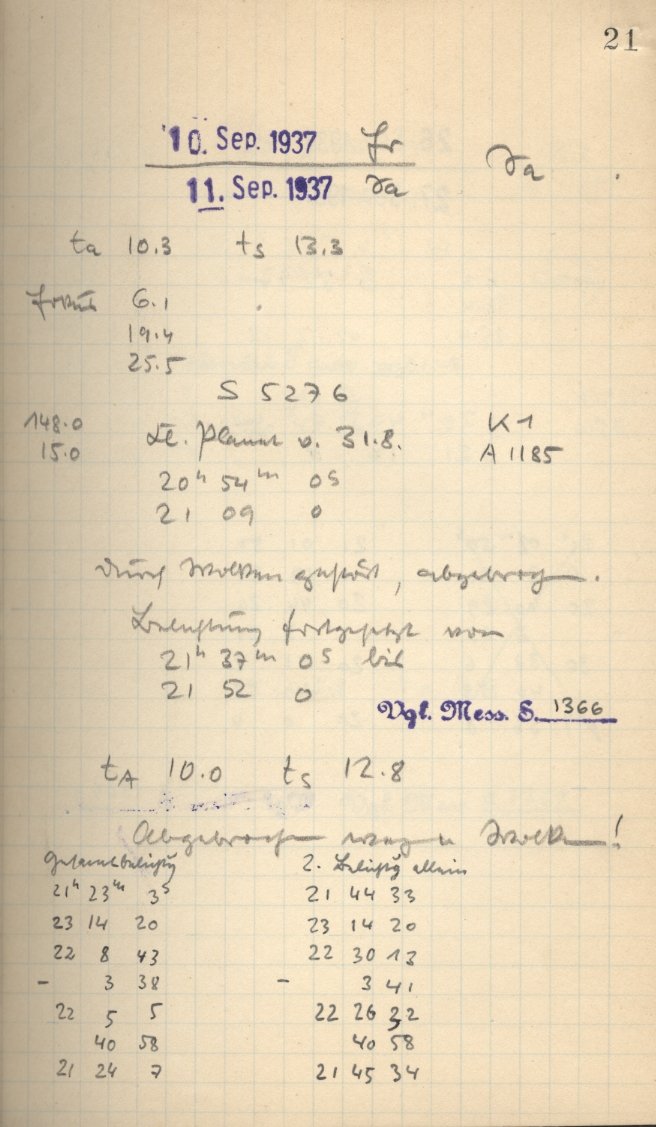 21
10. Sep. 1937 Fr
11. Sep. 1937 Sa
ta 10.3 ts 13.3
Fokus 6.1
19.4
25.5
S 5276
148.0
15.0
Kl. Planet v. 31.8.
K 1
A 1185
20h 54m 0s
21 09 0
Durch Wolken gestört, abgebrochen.
Belichtung fortgesetzt von
21h 37m 0s bis
21 52 0
Vgl. Mess. S. 1366
tA 10.0 ts 12.8
Abgebrochen wegen Wolken!
Gesamtbelichtg
21h 23m 3s
23 14 20
22 8 43
- 3 38
22 5 5
40 58
21 24 7
2. Belichtg allein
21 44 33
23 14 20
22 30 13
- 3 41
22 26 32
40 58
21 45 34